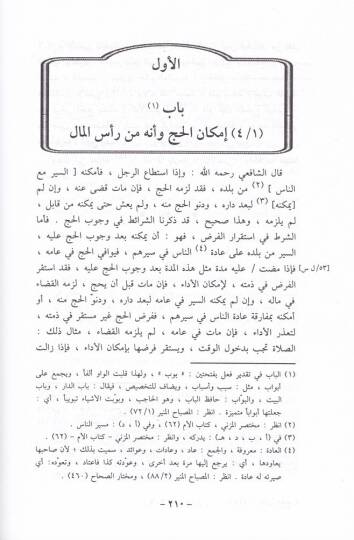 الأول
باب (١)
(٤/١) إمكان الحج وأنه من رأس المال
قال الشافعي رحمه الله : وإذا استطاع الرجل ، فأمكنه [ السير مع
الناس ] (٢) من بلده ، فقد لزمه الحج ، فإن مات قضى عنه ، وإن لم
[يمكنه] (٣) لبعد داره ، ودنو الحج منه ، ولم يعش حتى يمكنه من قابل ،
لم يلزمه ، وهذا صحيح ، قد ذكرنا الشرائط في وجوب الحج . فأما
الشرط في استقرار الفرض ، فهو : أن يمكنه بعد وجوب الحج عليه ،
السير من بلده على عادة (٤) الناس في سيرهم ، فيوافي الحج في عامه ،
[٥٣/ل س] فإذا مضت / عليه مدة مثل هذه المدة بعد وجوب الحج عليه ، فقد استقر
الفرض في ذمته ، لإمكان الأداء ، فإن مات قبل أن يحج ، لزمه القضاء
في ماله ، وإن لم يمكنه السير في عامه لبعد داره ، ودنوّ الحج منه ، أو
أمكنه بمفارقة عادة الناس في سيرهم ، ففرض الحج غير مستقر في ذمته ،
لتعذر الأداء ، فإن مات في عامه ، لم يلزمه القضاء ، مثال ذلك :
الصلاة تجب بدخول الوقت ، ويستقر فرضها بإمكان الأداء ، فإذا زالت
(١) الباب في تقدير فعل بفتحتين : « بوب » ، ولهذا قلبت الواو ألفاً ، ويجمع على
أبواب ، مثل : سبب وأسباب ، ويضاف للتخصيص ، فيقال : باب الدار ، وباب
البيت ، والبواب : حافظ الباب ، وهو الحاجب ، وبوّبت الأشياء تبويباً ، أي :
جعلتها أبواباً متميزة . انظر : المصباح المنير (٧٢/١) .
(٢) انظر : مختصر المزني ، كتاب الأم (٦٢) ، وفي (أ ، د) : مسير الناس .
(٣) في (أ ، ب ، د ، هـ) : يدركه ، وانظر : مختصر المزني - كتاب الأم - (٦٢) .
(٤) العادة : معروفة ، والجمع : عاد ، وعادات ، وعوائد ، سميت بذلك ؛ لأن صاحبها
يعاودها ، أي : يرجع إليها مرة بعد أخرى ، وعودته كذا فاعتاد ، وتعوّده: أي
صيرته له عادة . انظر : المصباح المنير (٨٨/٢) ، ومختار الصحاح (٤٦٠) .
- ٢١٠ -